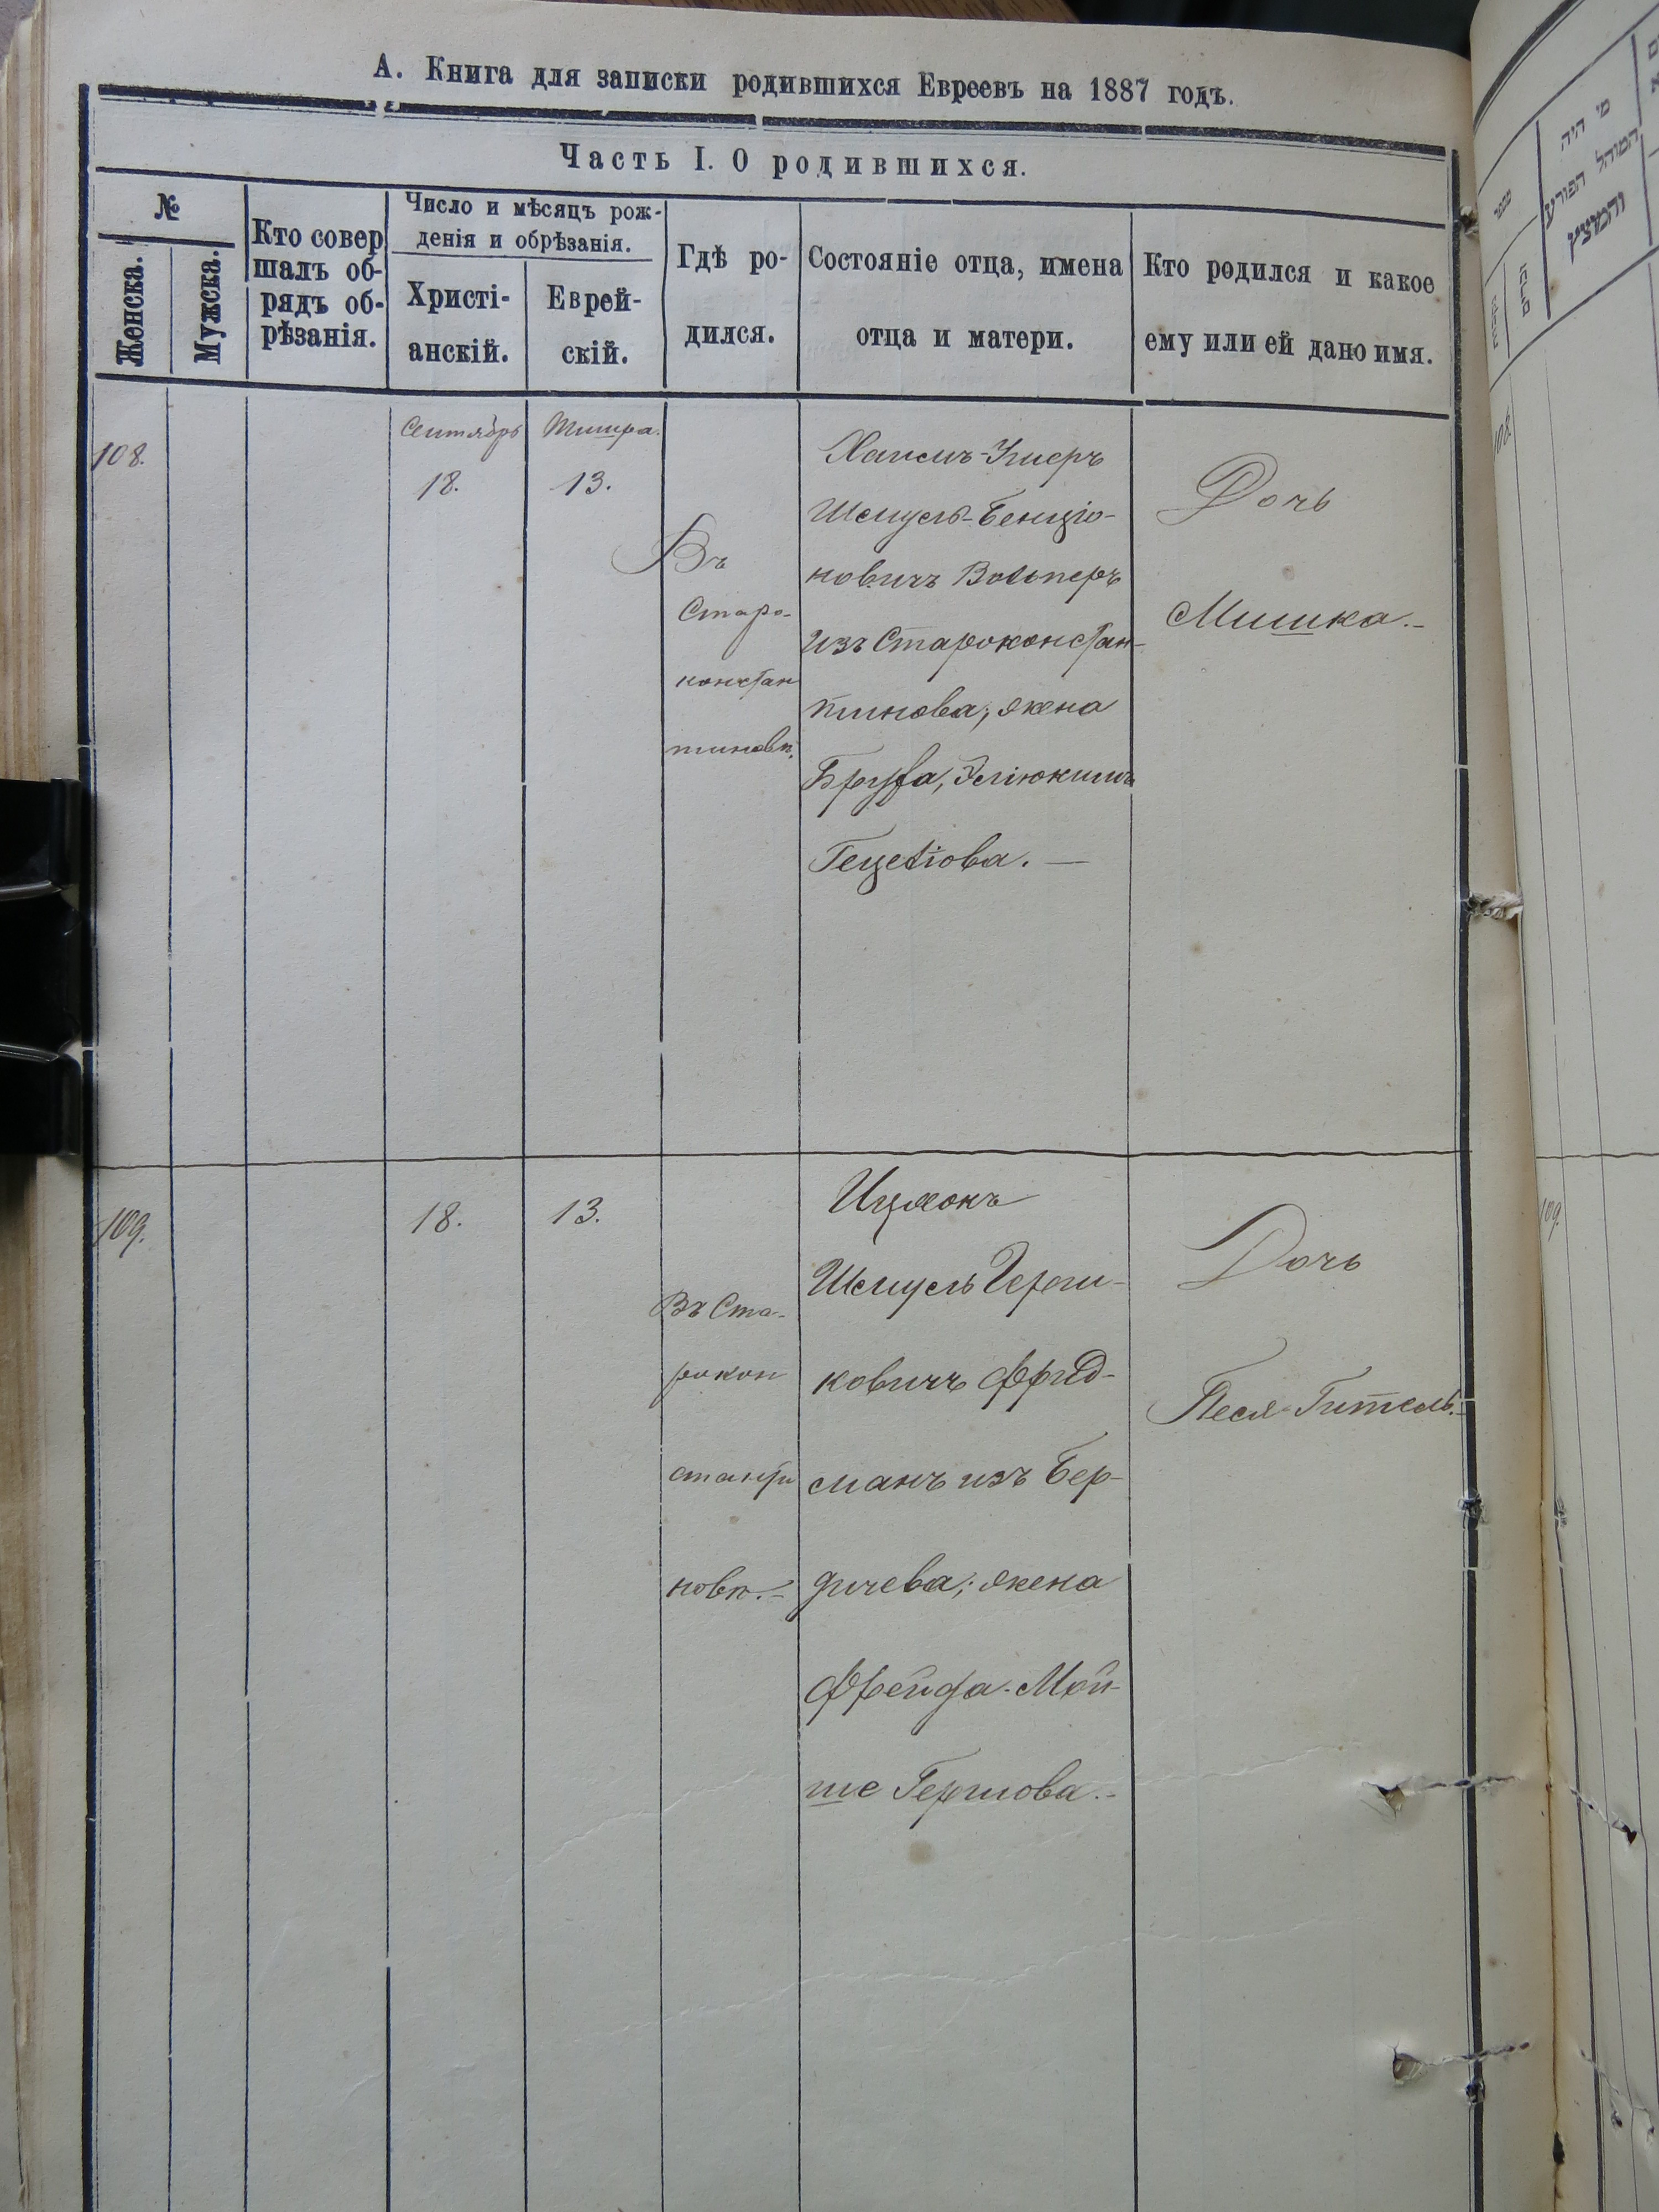 А. Книга для записки родившихся Евреевъ на 1887 годъ.
Часть I. О родившихся.
№
Женска.
Мужска.
Кто совер
шалъ об-
рядъ об-
рѣзанія.
Число и мѣсяцъ рож-
денія и обрѣзанія.
Христі-
анскій.
Еврей-
скій.
Гдѣ ро-
дился.
Состояніе отца, имена
отца и матери.
Кто родился и какое
ему или ей дано имя.
108.
Сентябрь
18.
Тишра.
13.
Въ
Старо-
констан
тиновѣ.
Хаимъ-Ушеръ
Шмуель-Бенціо-
новичъ Вольперъ
изъ Староконстан-
тинова; жена
Брута, Элiокимъ
Гецелiова. —
Дочь
Мишка.-
109.
18.
13.
Въ Ста-
рокон
станти
новѣ.-
Ицхокъ
Шмуель Герш-
ковичъ Фрид-
манъ изъ Бер-
дичева; жена
Фрейда-Мой-
ше Гершова.-
Дочь
Песя-Гитель.-
מי היה
המוהל הפורע
והמוצץ
מספר
108.
109.